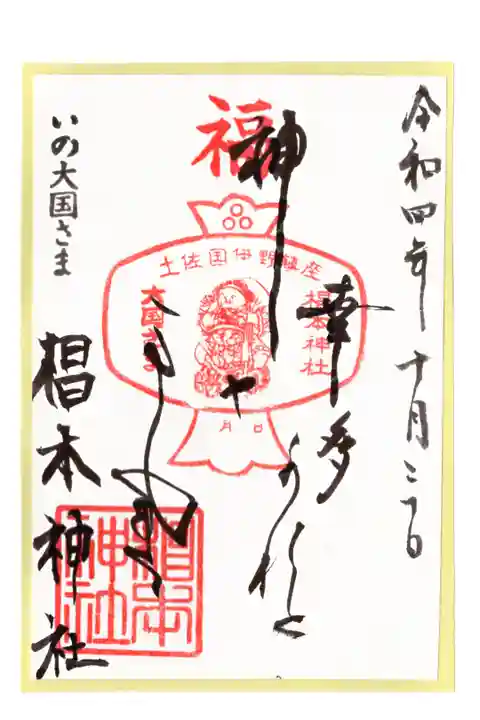 令和四年十月二十日
幸多かれと
神や
福
土佐国伊野鎮座
椙本神社
大国さま
月 日
いの大国さま
椙本神社
椙本神社